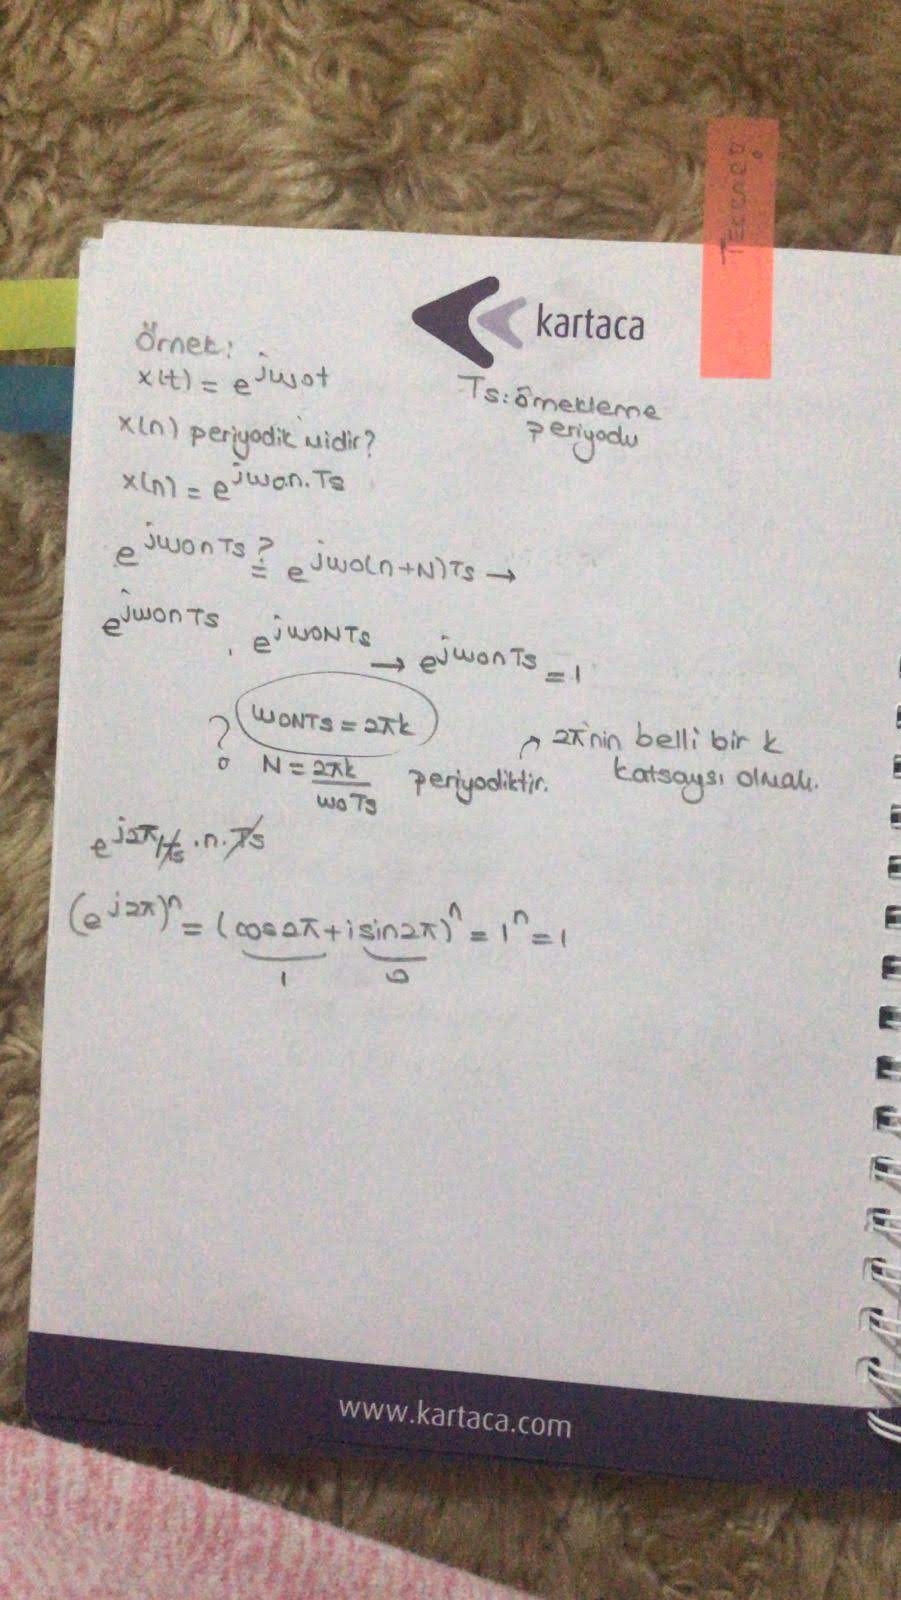 Tekrar
kartaca
Örnek:
x(t) = e^jwot
Ts: örnekleme
periyodu
x(n) periyodik midir?
x(n) = e^jwon.Ts
e^jwonTs ?= e^jwo(n+N)Ts →
e^jwonTs . e^jwoNTs → e^jwonTs = 1
woNTs = 2πk
? N = 2πk/woTs periyodiktir.
↗ 2π'nin belli bir k
katsaysı olmalı.
e^j2π/Ts .n.Ts
(e^j2π)^n = (cos2π + i sin2π)^n = 1^n = 1
1 0
www.kartaca.com